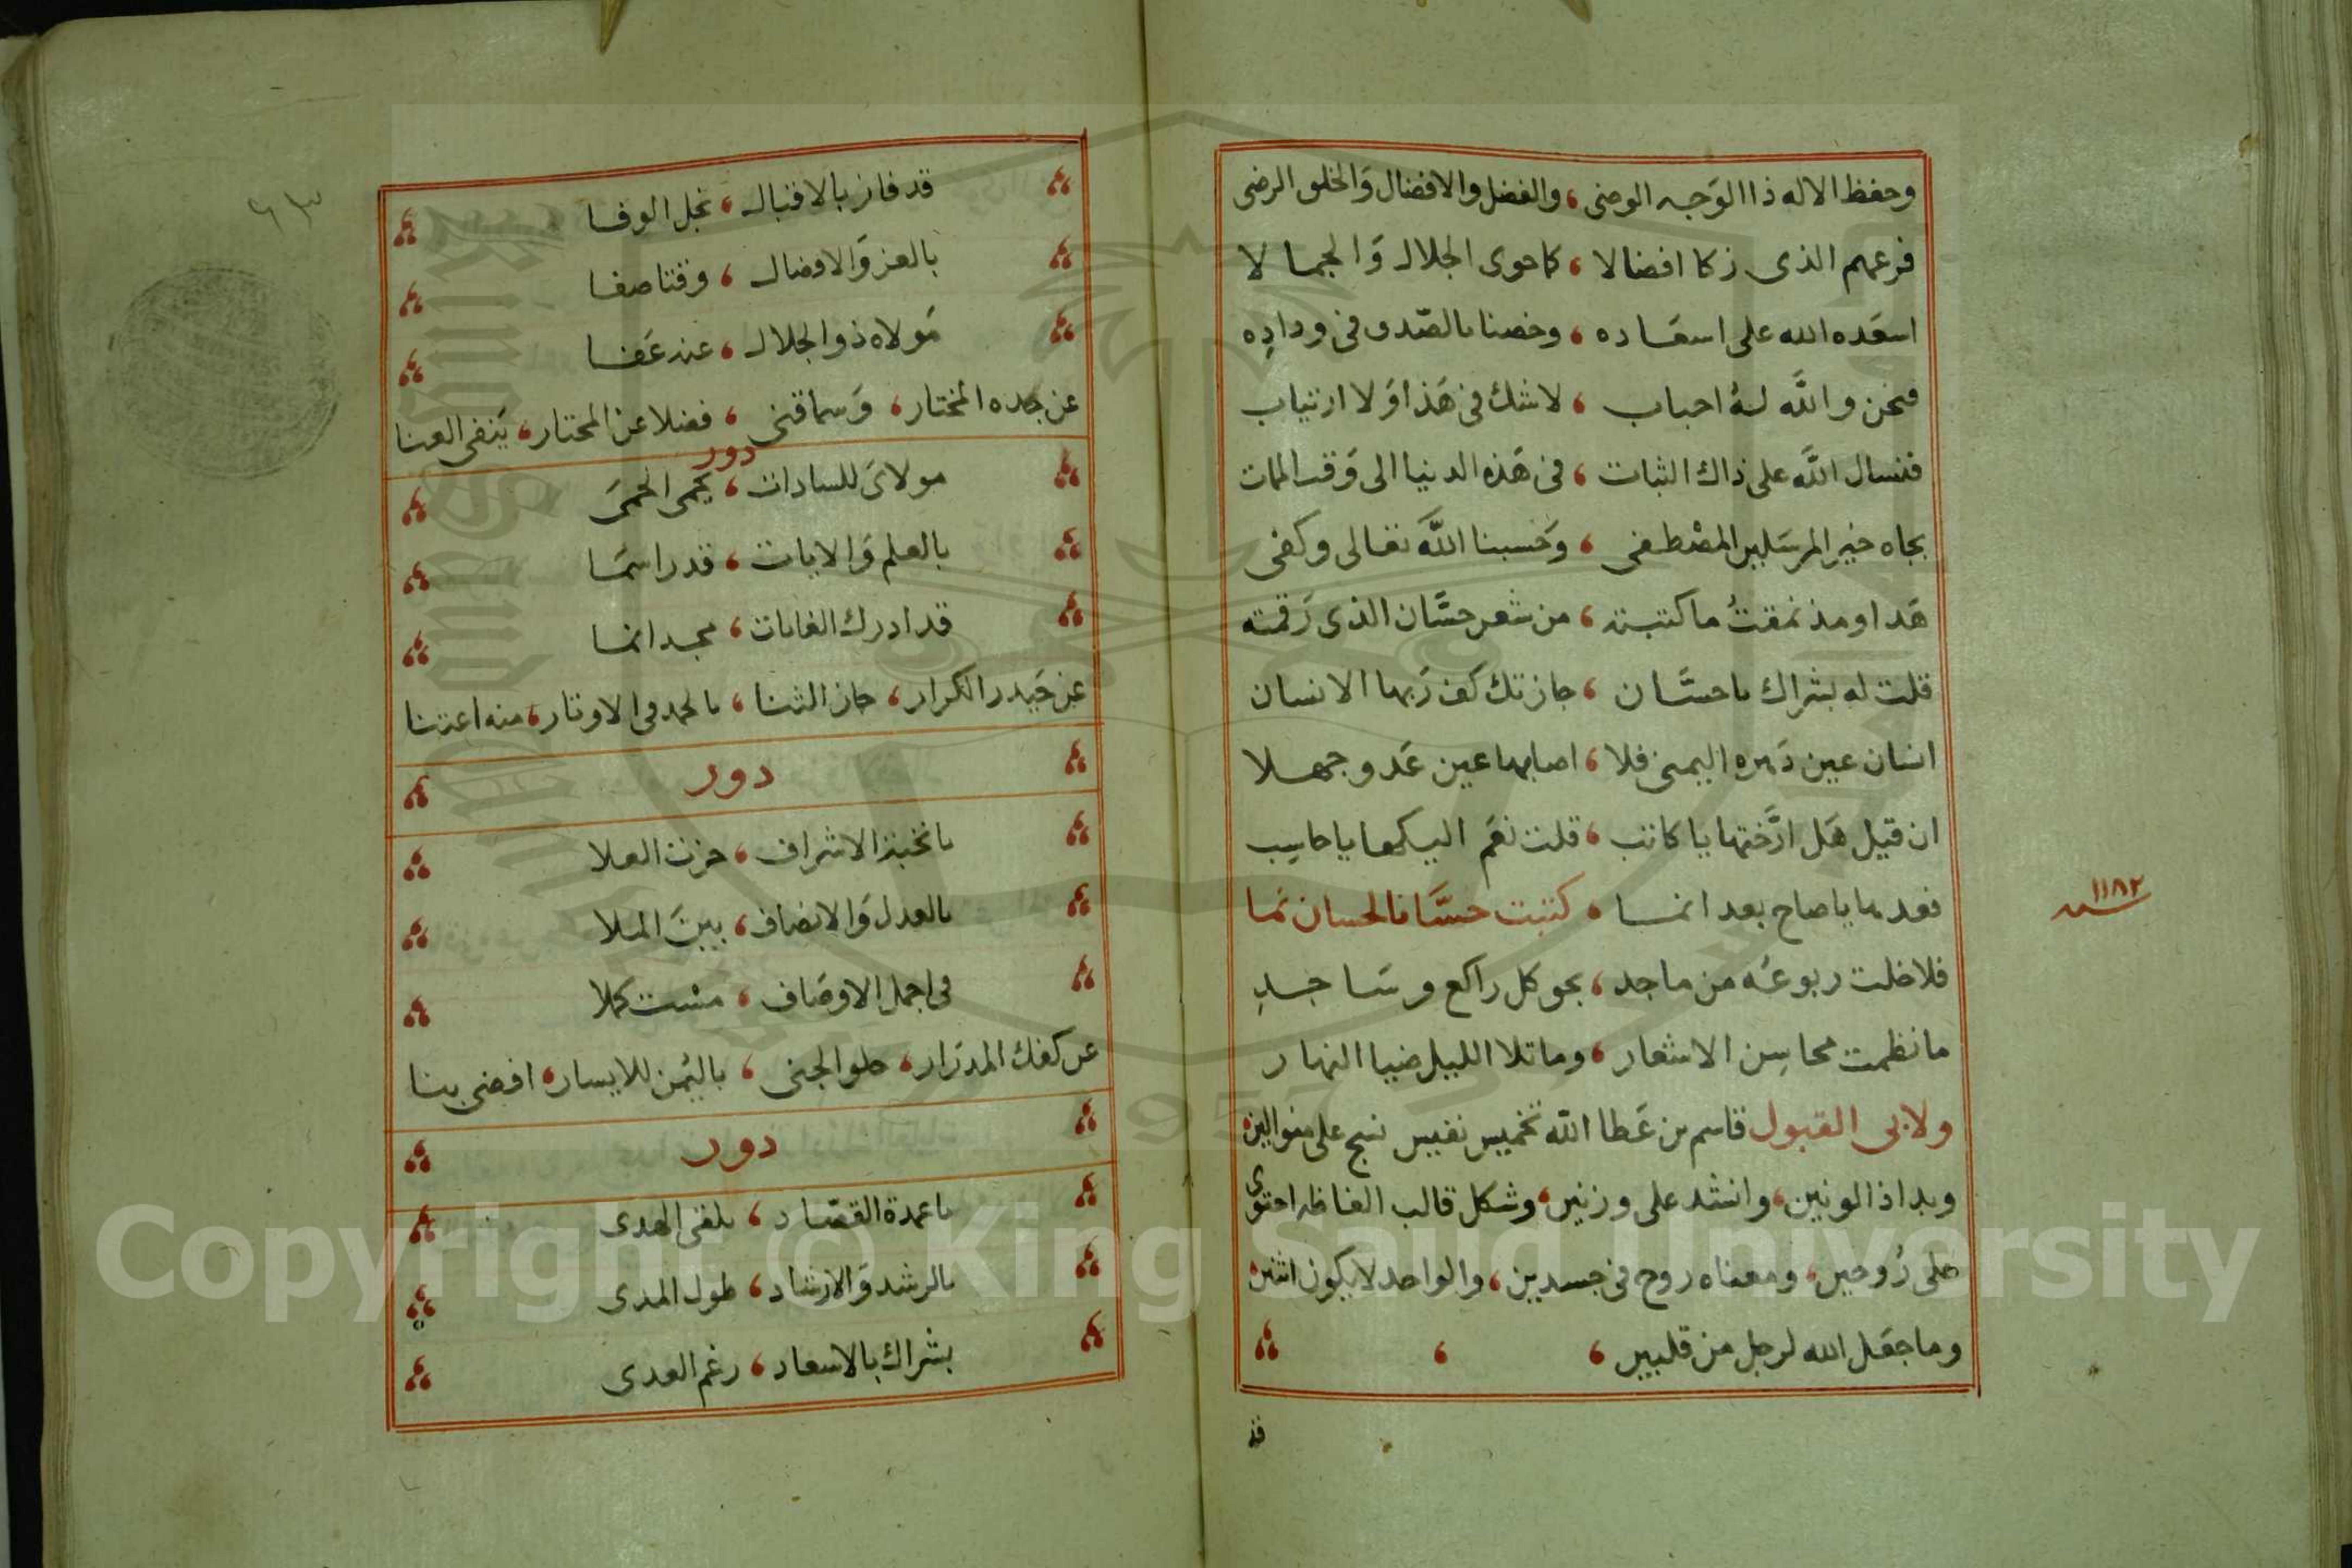 وحفظ الاله ذا الوَجه الوضى ، والفضل والافضال وَالخلق الرضى
فرعهم الذى زكا افضالا ، كما حوى الجلال وَالجمالا
اسعَده الله على اسعَاده ، وخصنا بالصّدق فى ودادِه
فنحن واللَّه لهُ احباب ، لاشك فى هَذا وَلا ارتياب
فنسال اللَّه على ذاك الثبات ، فى هَذه الدنيا الى وَقت الممات
بجاه خير المرسَلين المصْطفى ، وَحَسبنا اللَّه تعالى وكفى
هَذا ومذ نمقتُ ما كتبته ، من شعر حسَّان الذى رَقمته
قلت له بشراك يا حسَّان ، جازتك كف رَبها الانسان
انسان عين دَهره اليمنى فلا ، اصابها عين عَدو جهلا
ان قيل هَل ارَّختها يا كاتب ، قلت نعَم اليكها يا حاسِب
فعدها يا صاح بعد انما ، كتبت حسَّانا لحسان نما
١١٨٢ سنه
فلا خلت ربوعُه من ماجد ، بحو كل راكع وسَاجدِ
ما نظمت محاسِن الاشعار ، وما تلا الليل ضيا النهار
ولابى القبول قاسم بن عَطا الله تخميس نفيس نسج على منوالين
وبدا ذا لونين ، وانشد على وزنين ، وشكل قالب الفاظه احتوى
على رُوحين ، ومعناه روح فى جسدين ، والواحد لا يكون اثنين
وما جعَل الله لرجل من قلبين ،
قد
٦٣
قد فاز بالاقبال ، نجل الوفا
بالعز وَالافضال ، وقتا صفا
مَولاه ذو الجلال ، عنه عَفا
عن جده المختار ، وَسما قنى ، فضلا عن المحتار ، يَنفى العنا
دور
مولاىَ للسادات ، يحمى الحمىَ
بالعلم وَالايات ، قدرا سمَا
قد ادرك الغايات ، مجدا نما
عن حَيدر الكرار ، حاز الثنا ، بالحمد فى الاوتار ، منه اعتنا
دور
يا نخبة الاشراف ، حزت العلا
بالعدل وَالانصاف ، بينَ الملا
فى اجمل الاوصَاف ، مست كملا
عن كفك المدرَار ، حلو الجنى ، باليُمن للايسار ، افضى بنا
دور
يا عمدة القصّاد ، يلقى الهدى
بالرشد وَالارشاد ، طول المدى
بشراك بالاسعاد ، رغم العدى
Copyright © King Saud University
1957